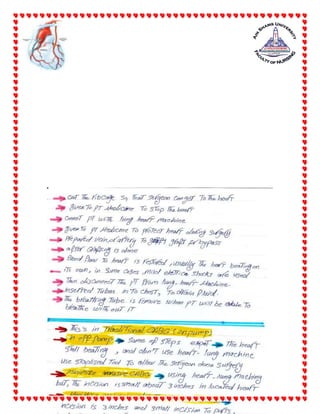 AIN SHAMS UNIVERSITY
FACULTY OF NURSING
cut the ribcage so that surgeon can get to the heart
given to PT Medicine To stop the heart
connect PT with lung heart machine
given to PT Medicine To protect heart during surgery
Prepared vein or artery To graft for bypass
after grafting is done
blood flow to heart is restored, usually the heart beating on
its own, in some cases mild electrica shocks are used
Then disconnect the PT from lung-heart Machine
inserted Tubes into chest, To drain fluid
The breathing Tube is remove when PT will be able To
breathe with out IT
This is in Traditional CABG (on pump)
off pump same of steps except The heart
still beating, and didn't use heart-lung machine
use stabilized Tool To allow the surgeon doing surgery
using heart-lung machine
but, the incision is small about 3 inches in located heart
incision is 3 inches and small incision To ports.